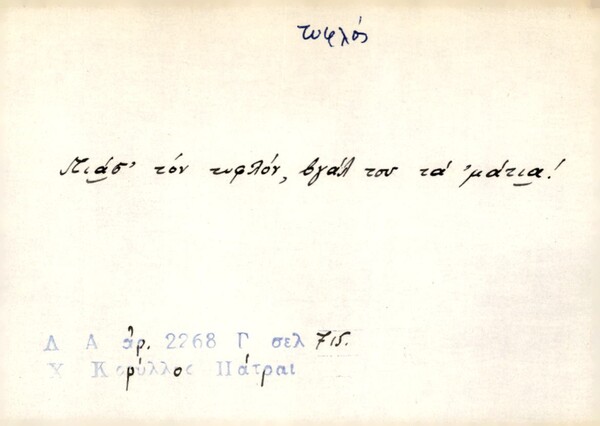 τυφλός
Πιάσ' τόν τυφλόν, βγάλ του τά 'μάτια!
Λ Α ἀρ. 2268 Γ σελ 715.
Χ Κορύλλος Πάτραι